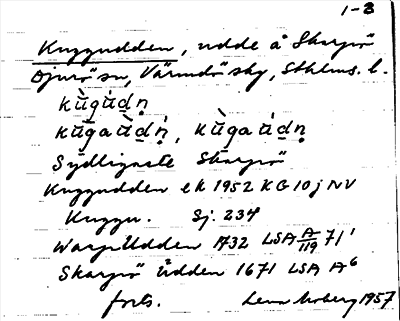 1-3
Kuggudden, udde å Skarpö
Djurö sn, Värmdö sky, Sthlms. l.
kùgúdņ
kùgaùdņ, kùgaúdņ
Sydligaste Skarpö
Kuggudden ek 1952 KG 10j NV
Kuggu. Sj. 234
Udden 1732 LSA A/119 71'
Skarpö Udden 1671 LSA A6
forts. Lena Moberg 1957